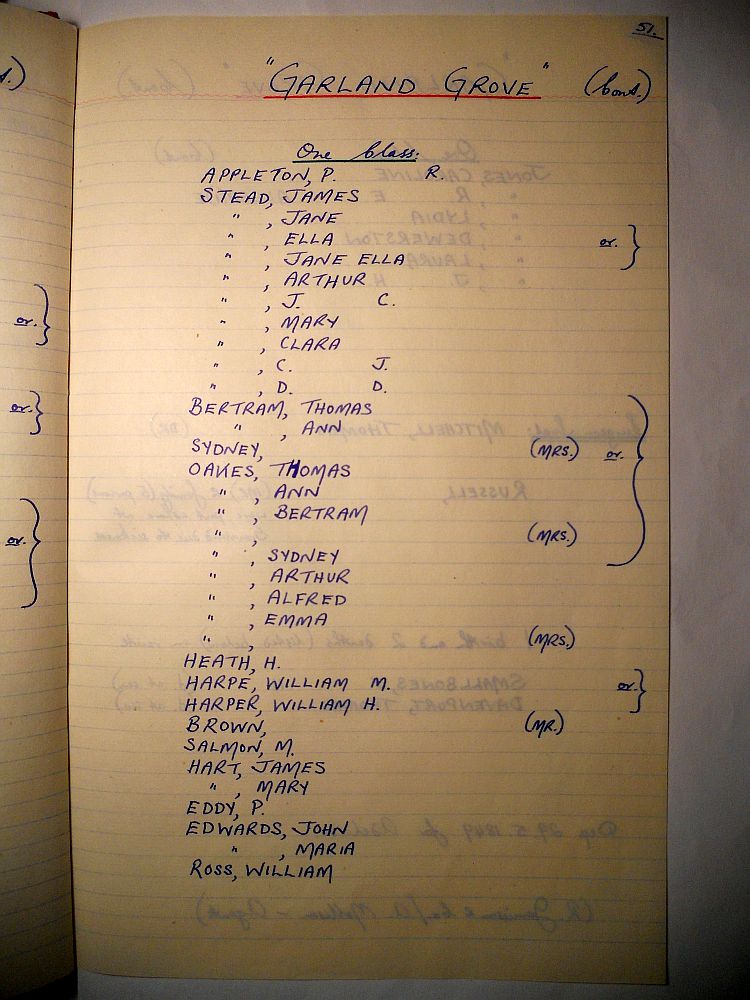 51.
"GARLAND GROVE" (Cont.)
One Class:
APPLETON, P. R.
STEAD, JAMES
" , JANE
" , ELLA or. }
" , JANE ELLA
" , ARTHUR
" , J. C.
" , MARY
" , CLARA
" , C. J.
" , D. D.
BERTRAM, THOMAS
" , ANN
SYDNEY, (MRS.) or. }
OAKES, THOMAS
" , ANN
" , BERTRAM
" , (MRS.)
" , SYDNEY
" , ARTHUR
" , ALFRED
" , EMMA
" , (MRS.)
HEATH, H.
HARPE, WILLIAM M. or. }
HARPER, WILLIAM H.
BROWN, (MR.)
SALMON, M.
HART, JAMES
" , MARY
EDDY, P.
EDWARDS, JOHN
" , MARIA
ROSS, WILLIAM
or. }
or. }
or. }